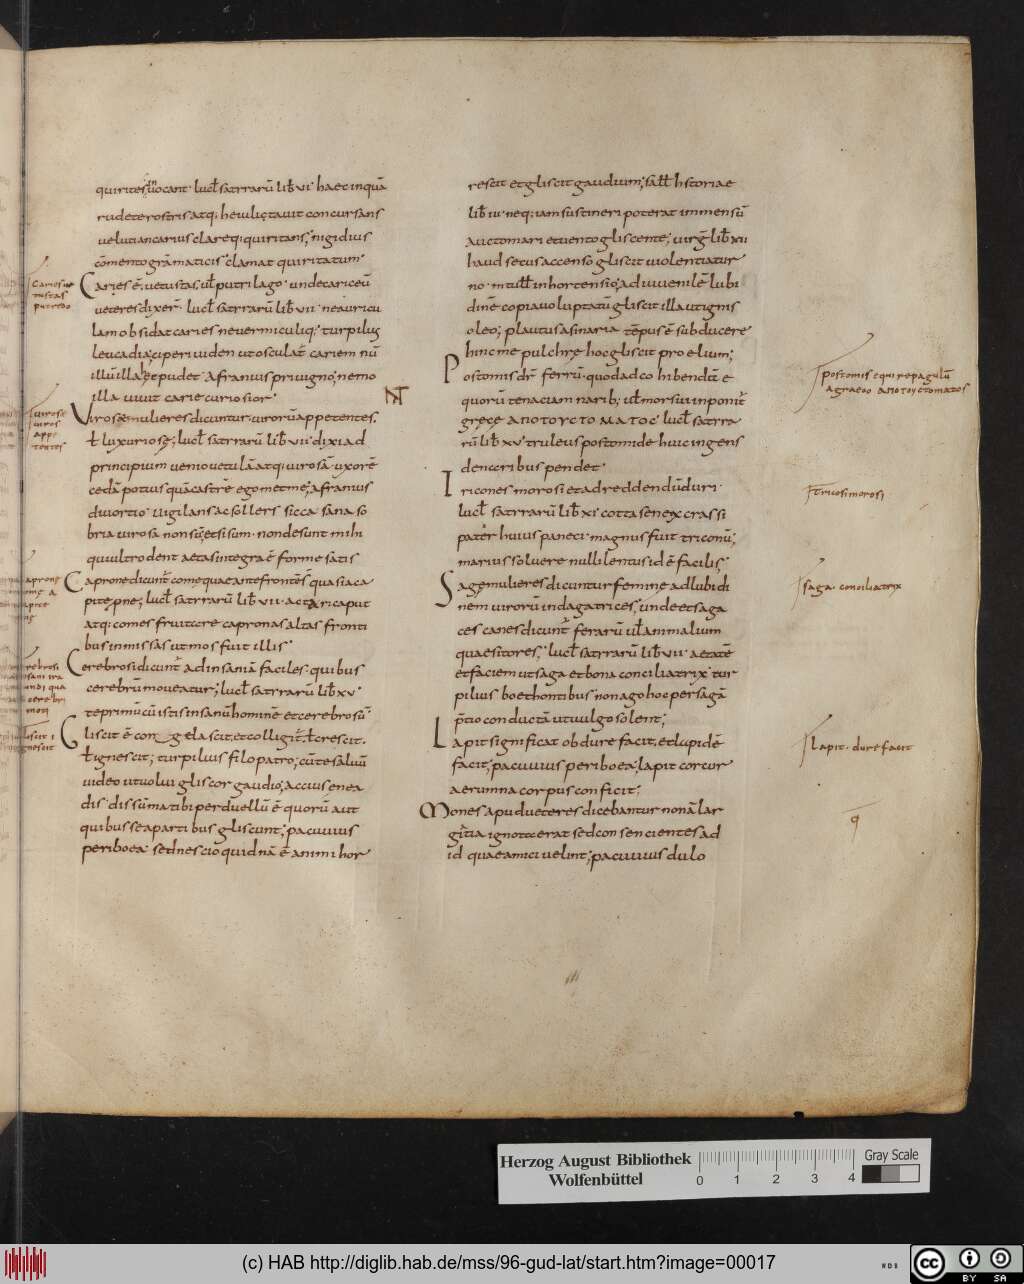 quirites inuocant· lucł satyrarū lib̄ vi· haec inquā
rudet e rostris atq; heiulitauit concursans
uelut ancarius clareq; quiritans; nigidius
cōmento grāmaticis· clamat quiritatum·
Caries ē uetustas ul̄ putrilago· unde cariceū
ueteres dixer̄· lucł satyrarū lib̄ vii· ne auricu
lam obsidat caries ne uermiculiq; turpilius
leucadia; ciperi uiden ut osculat̄ cariem nū
illū illa haec pudet· Afranius priuigno; nemo
illa uiuit carie curiosior·
Virosae mulieres dicuntur uirorū appetentes.
ł luxuriosę; lucł satyrarū lib̄ vii· dixi ad
principium uenio uetulā atq; uirosā· uxorē
cedā potius quā castrē egomet me; Afranius
diuortio· uigilans ac sollers sicca sana so
bria uirosa non sū; et si sum· non desunt mihi
qui ultro dent aetas integra ē forme satis·
Caprone dicunt̄ come quae ante frontēs quasi a ca
pite pne; lucł satyrarū lib̄ vii· actari caput
atq; comes fruitere capronas altas fronti
bus inmissas ut mos fuit illis·
Cerebrosi dicunt̄ ad insaniā faciles· quibus
cerebrū moueatur; lucł satyrarū lib̄ xv·
te primū cū istis insanū hominē et cerebrosū·
Gliscit ē congelascit; et colligit̄· ł crescit.
ł ignescit; turpilius filopatro; cū te saluū
uideo ut uolui gliscor gaudio; accius enea
dis· dissūma tibi perduellū ē quorū aut
quibus se a partibus gliscunt; pacuuius
periboea· sed nescio quid nā ē animi hor
rescit et gliscit gaudium; sałł hstoriae
lib̄ iii· neq; iam sustineri poterat immensū
aucto mari et uento gliscente; uirḡ lib̄ xii
haud secus accenso gliscit uiolentia tur
no· m tułł in hortensio; ad iuuenilē lubi
dinē copia uoluptatū gliscit illa ut ignis
oleo; plautus asinaria· tēpus ē subducere
hinc me pulchrę hoc gliscit proelium;
Postomis dr̄ ferrū· quod ad cohibendā e
quorū tenaciam narib; ul̄ morsui inponit̄
gręcę ΑΠΟΤΟΥϹΤΟΜΑΤΟϹ· lucł satyra
rū lib̄ xv· truleus postomide huic ingens
de naribus pendet·
Tricones morosi et ad reddendū duri·
lucł satyrarū lib̄ xi· cotta senex crassi
pater huius paneci· magnus fuit triconū;
marius soluere nulli lentus idē facilis;
Sagę mulieres dicuntur femine ad lubidi
nem uirorū indagatrices; unde et saga
ces canes dicunt̄ ferarū ul̄ animalium
quaesitores; lucł satyrarū lib̄ vii· aetatē
et faciem ut saga et bona conciliatrix· tur
pilius boethontibus non ago hoc per sagā
p̄tio conductā ut uulgo solent;
Lapit significat obdure facit, et lapidē
facit; pacuuius periboea; lapit cor cur
aerumna corpus conficit;
Mones apud ueteres dicebantur non ā lar
gitia ignoti erat sed consencientes ad
id quae amici uelint; pacuuius dulo
Caries ue
tustas
putredo
uirose
uiros
appe
tentes
Postomis equi repagulū
a graeco ΑΠΟΤΟΥϹΤΟΜΑΤΟϹ
triuosi morosi
saga· conciliatrix
lapit· dure facit
q
Herzog August Bibliothek
Wolfenbüttel
0 1 2 3 4
Gray Scale
(c) HAB http://diglib.hab.de/mss/96-gud-lat/start.htm?image=00017
WDB
cc BY SA